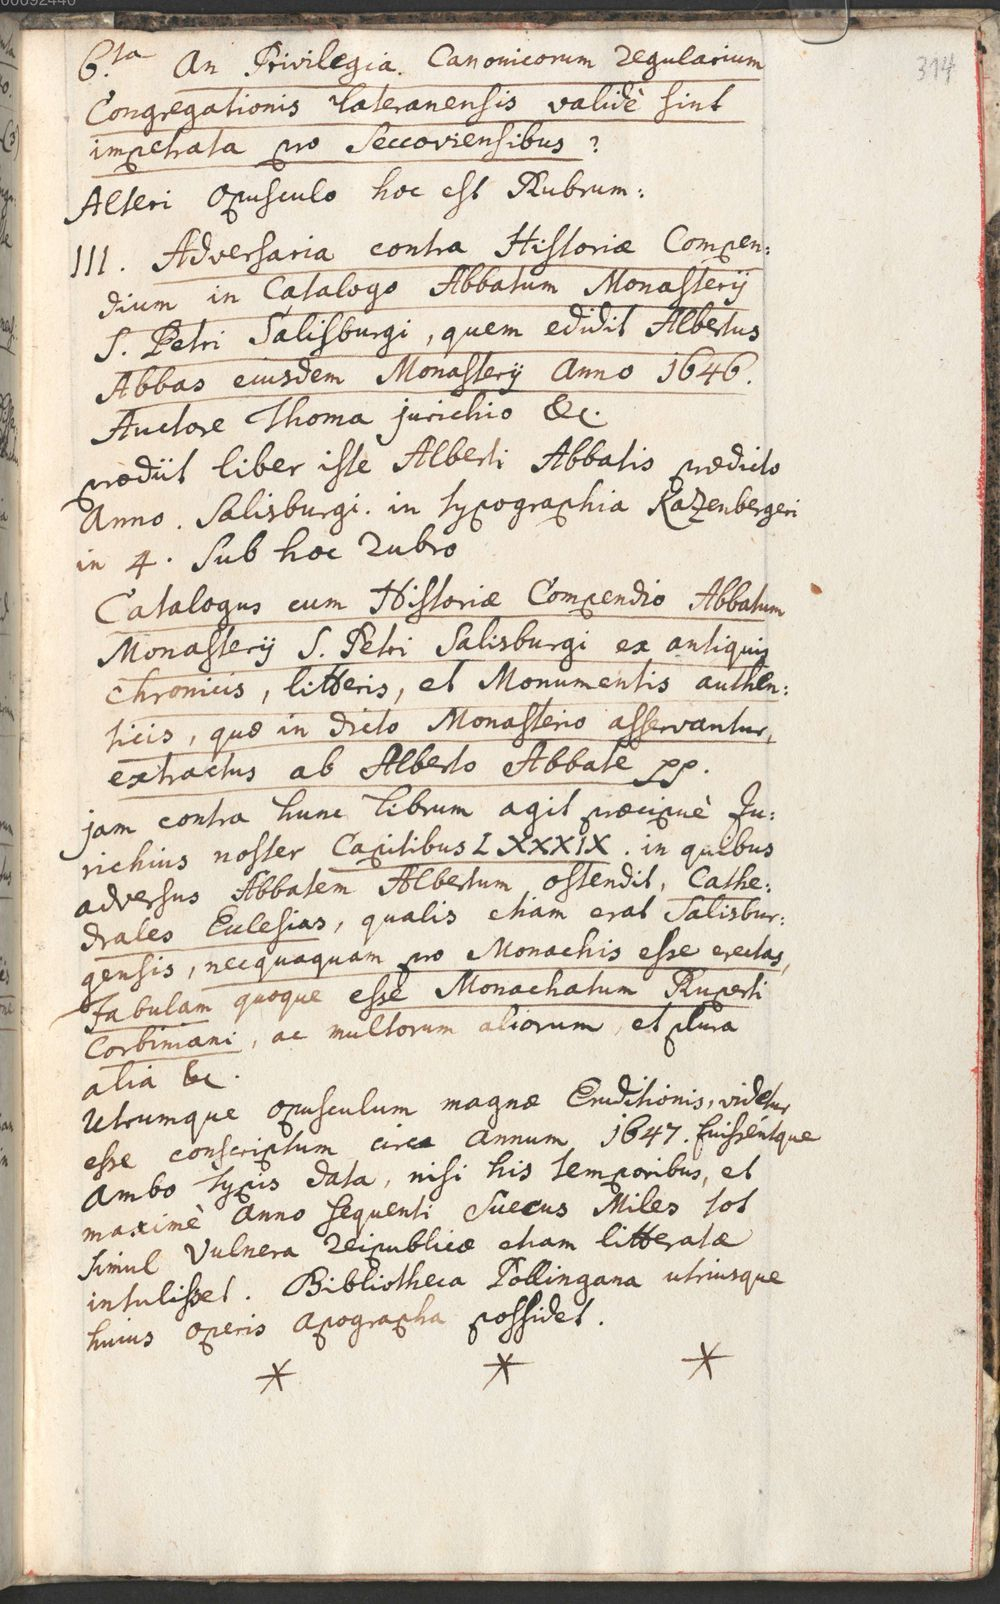 314
6.ta An Privilegia Canonicorum regularium
Congregationis Lateranensis validè sint
impetrata pro Seccoviensibus ?
Alteri opusculo hoc est Rubrum:
III. Adversaria contra Historiæ Compen:
dium in Catalogo Abbatum Monasterij
S. Petri Salisburgi, quem edidit Albertus
Abbas eiusdem Monasterij Anno 1646.
Auctore Thoma jurichio &c.
prodiit liber iste Alberti Abbatis prædicto
Anno. Salisburgi. in typographia Kazenbergeri
in 4. Sub hoc rubro
Catalogus cum Historiæ Compendio Abbatum
Monasterij S. Petri Salisburgi ex antiquis
chronicis, litteris, et Monumentis authen:
ticis, quæ in dicto Monasterio asservantur,
extractus ab Alberto Abbate pp.
jam contra hunc librum agit præcipuè Ju:
richius noster Capitibus LXXXIX. in quibus
adversus Abbatem Albertum ostendit, Cathe:
drales Eclesias, qualis etiam erat Salisbur:
gensis, necquaquam pro Monachis esse erectas,
fabulam quoque esse Monachatum Ruperti
Corbiniani, ac multorum aliorum, et plura
alia &c.
Utrumque opusculum magnæ Eruditionis, videtur
esse conscriptum circa annum 1647. fuissentque
ambo typis data, nisi his temporibus, et
maximè anno sequenti Suecus Miles tot
simul vulnera reipublicæ etiam litteratæ
intulisset. Bibliotheca Pollingana utriusque
huius operis apographa possidet.
* * *